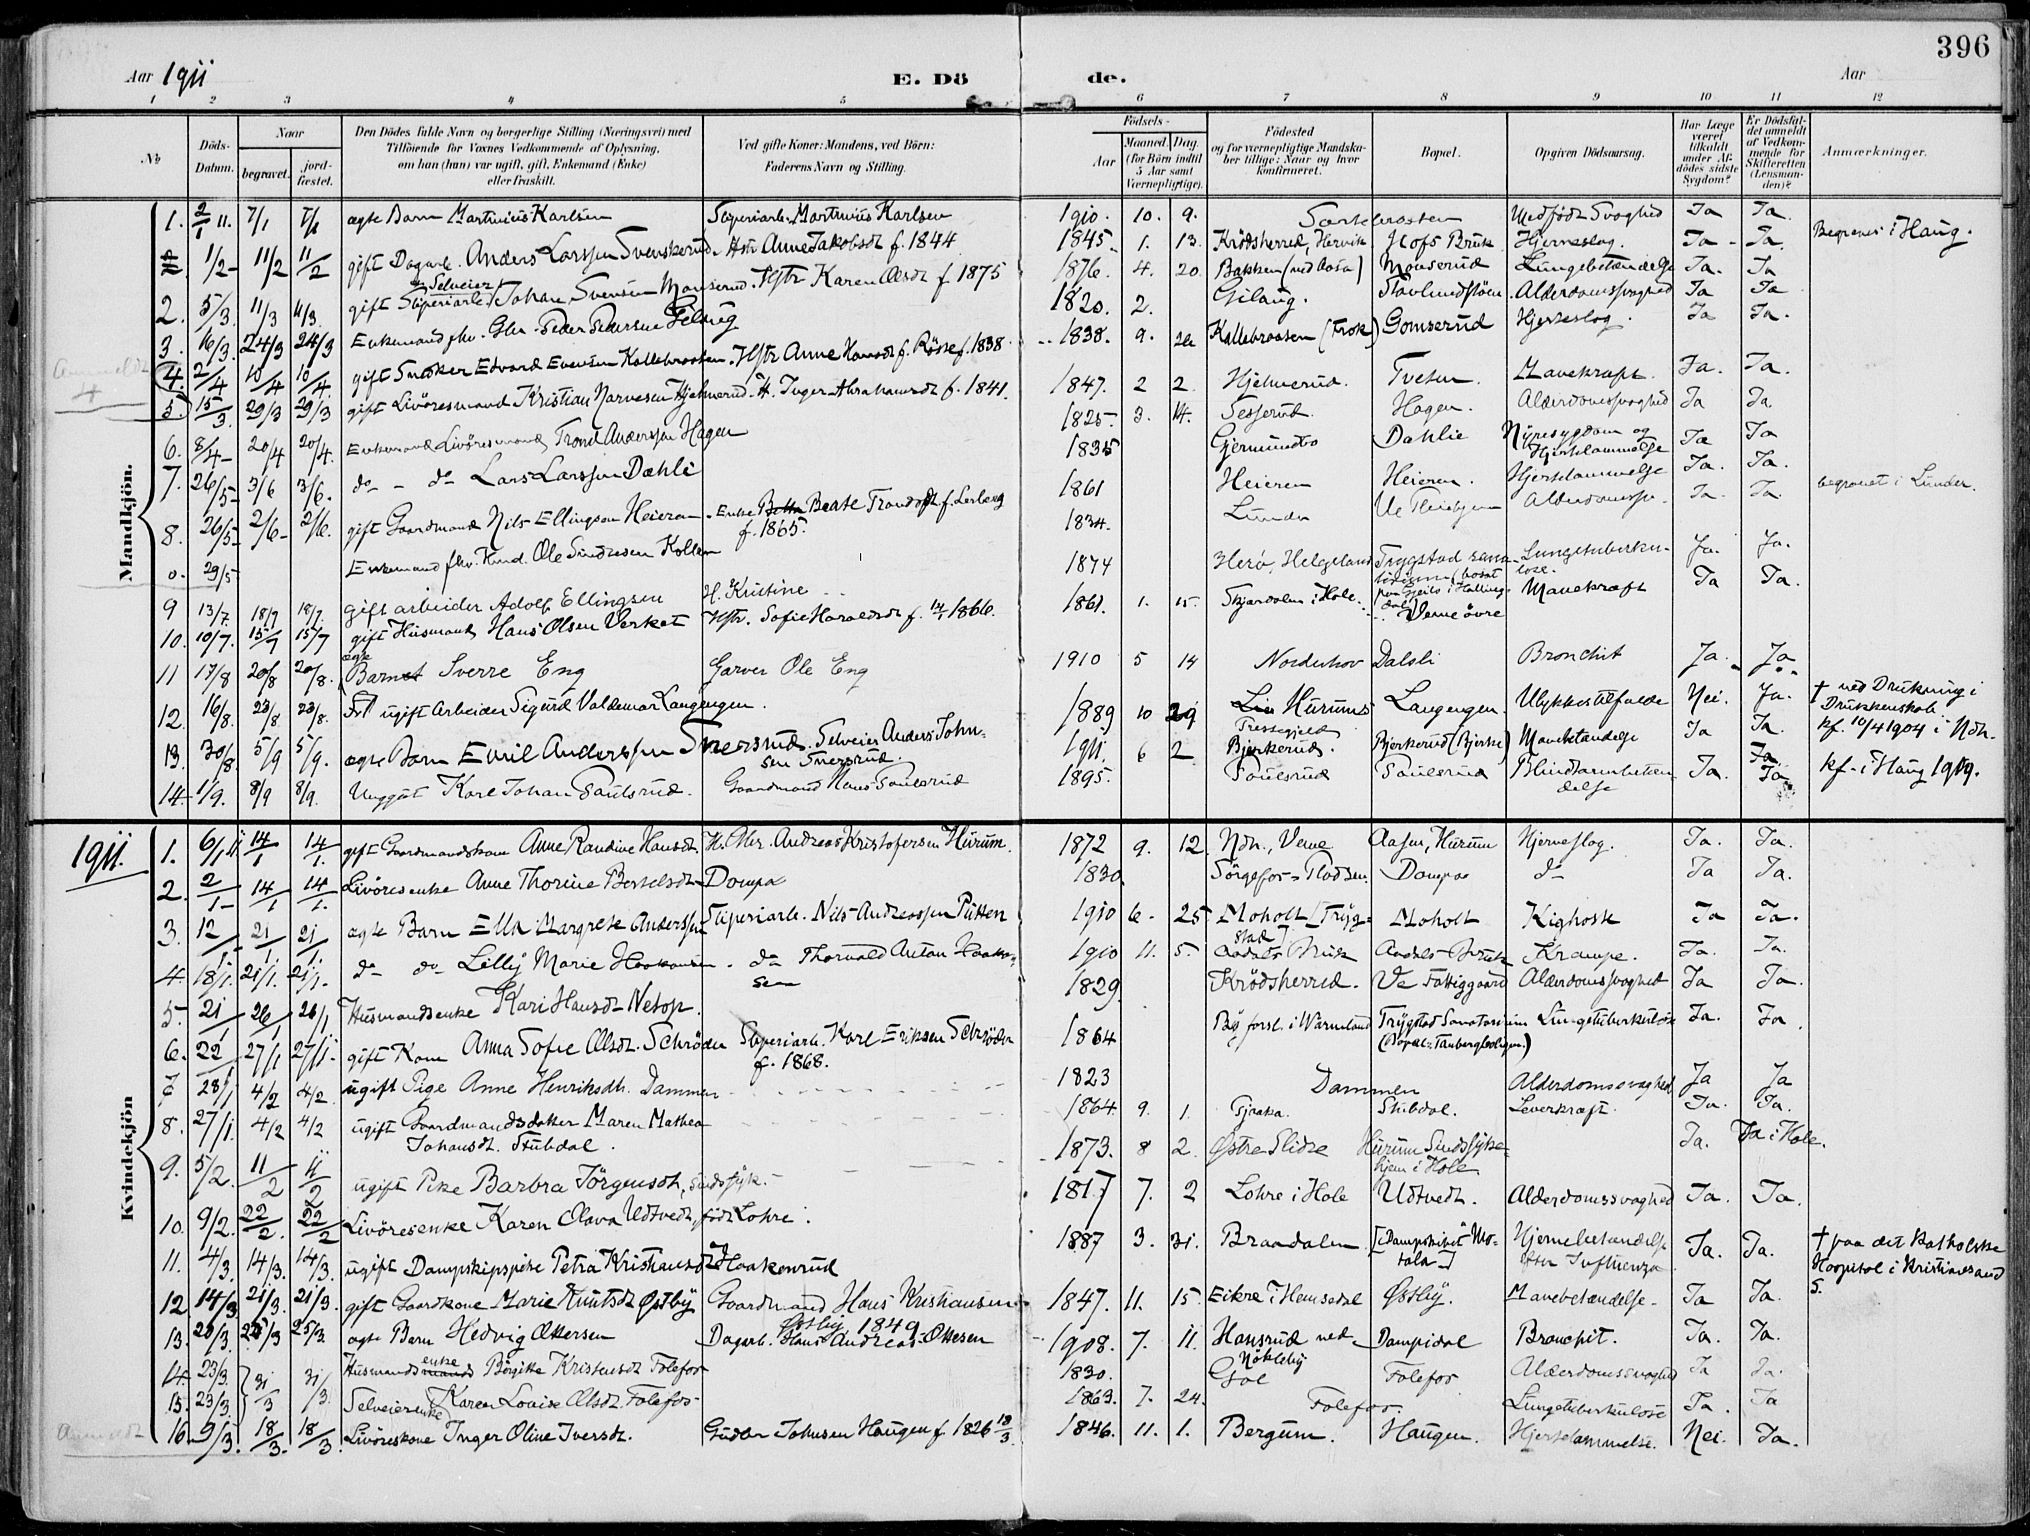 396
Aar 1911 E. Dö de. Aar
1 2 3 4 5 6 7 8 9 10 11 12
No
Döds-Datum.
Naar
begravet.
jord-fæstet.
Den Dödes fulde Navn og borgerlige Stilling (Næringsvei) med
Tilföiende for Voxnes Vedkommende af Oplysning,
om han (hun) var ugift, gift, Enkemand (Enke)
eller fraskilt.
Ved gifte Koner: Mandens, ved Börn:
Faderens Navn og Stilling.
Födsels-
Aar
Maaned. Dag.
(for Börn indtil
5 Aar samt
Værnepligtige).
Födested
og for værnepligtige Mandska-
ber tillige: Naar og hvor
konfirmeret.
Bopæl.
Opgiven Dödsaarsag.
Har Læge
været
tilkaldt
under Af-
dödes sidste
Sygdom?
Er Dödsfal-
det anmeldt
af Vedkom-
mende for
Skifteretten
(Lensman-
den)?
Anmærkninger.
Mandkjön.
1. 2/1 11. 7/1 7/1 ægte Barn Martinius Karlsen Sliperiarb. Martinius Karlsen 1910. 10. 9. Medfödt Svaghed Ja Ja. Begravet i Haug.
1/2 11/2 11/2 gift Dagarb. Anders Larssen Svenskerud. Hstr. Anne Jakobsdt. f. 1844 1845. 1. 13. Krödsherred, Hofs Bruk Hjerneslag. Ja Ja.
2. 5/3. 11/3 11/3. gift Selveier Sliperiarb. Johan Svensen Monserud. Hstr. Karen Olsdt f. 1875 1876. 4. 20. Bakken Monserud Lungebetændelse Ja. Ja
3. 16/3. 24/3 24/3 Enkemand fhv. Gbr. Peder Pedersen Gilaug 1820. 2. Gilaug. Alderdomssvaghed Ja Ja
4. 2/4 10/4 10/4. gift Snedker Edvard Evensen Kollebraaten. Hstr. Anne Hansdt. f. 1838 1838. 9. Kollebraaten Gomserud Hjerteslag. Ja Ja.
Anmeldt 4
5. 15/3. 29/3 29/3 gift Livöresmand Kristian Narvesen Hjelmerud. H. Inger Abrahamsdt f. 1841. 1847. 2 2 Hjelmerud. Tvetun. Mavekræft. Ja. Ja.
6. 8/4 20/4 20/4. Enkemand Livöresmand Trond Anderssen Hagen 1825. 3. 14. Sesserud. Hagen. Alderdomssvaghed Ja Ja.
7. 26/5 3/6 3/6. do - do Lars Larssen Dæhli 1835 Gjermundbo Dahlie Nyresygdom og Hjertelammelse Ja Ja
8. 26/5 2/6 2/6. gift Gaardmand Nils Ellingsen Heieren. Enke Beate Trondsdt f. Lerberg f. 1865. 1861 Heieren Heieren. Hjertelammelse Ja. Ja.
0. 29/5 Enkemand fhv. Ole Sindresen Kollen 1834. Lunder Alderdomssv. Ja. Ja. begravet i Lunder.
9 13/7. 18/7 18/7. gift arbeider Adolf Ellingsen H. Kristine 1874 Herö, Helgeland Trygstad sana-torium Lungetuberku-lose. Ja. Ja.
10. 10/7. 15/7 15/7 gift Husmand Hans Olsen Verket Hstr. Sofie Haraldsdt f. 1866. 1861. 1. 15. i Hole. Veme övre Mavekræft Ja Ja.
11 17/8 20/8 20/8. ægte Barnet Sverre Eng Garver Ole Eng 1910 5 14 Norderhov Dalsli Bronchit Ja. Ja
12. 16/8. 23/8 23/8. ugift Arbeider Sigurd Valdemar Langengen. 1889 10 29 Hurums Langengen. Ulykkestilfælde Nei. Ja. † ved Drukning i kf. 10/4 1904 i Ndh.
13. 30/8. 5/9 5/9. ægte Barn Emil Anderssen Snersrud. Selveier Anders John-sen Snersrud. 1911. 6 2 Bjerkerud. Bjerkerud (Bjerke) Mavebetændelse Ja Ja.
14. 1/9. 8/9 8/9. Unggut Karl Johan Paulsrud. Gaardmand Hans Paulsrud 1895. Paulsrud Paulsrud Blindtarmbetæn-delse Ja. Ja kf. i Haug 1909.
1911.
Kvindekjön
1. 6/1 11. 14/1 14/1. gift Gaardmandskone Anne Randine Hansdt. H. Gbr. Andreas Kristofersen Hurum. 1872 9. 12. Ndh., Veme Aasen, Hurum Hjerneslag. Ja. Ja.
2. 2/1 14/1 14/1. Livöresenke Anne Thorine Bertelsdt Dompa 1830. Dompa do Ja Ja.
3. 12/1 21/1 21/1. ægte Barn Ella Margrete Anderssen Sliperiarb. Nils Andreassen Putten 1910 6. 25 Moholt [Tryg-stad] Moholt Kighoste Ja Ja.
4. 18/1. 21/1. 21/1. do do Lilly Marie Haakonsen. do Thorvald Anton Haakon-sen 1910 11. 5. Aadals Bruk Aadals Bruk Krampe. Ja. Ja.
5. 21/1 26/1 26/1 Husmandsenke Kari Hansdt Netop. 1829 Krödsherred. Ve Fattiggaard Alderdomssvaghed Ja Ja.
6. 22/1 27/1 27/1. gift Kone Anna Sofie Olsdt. Schröder Sliperiarb. Karl Eriksen Schröder f. 1868. 1864 By forsl. i Wärmland Trygstad Sanatorium Lungetuberkulose Ja. Ja.
(Bopæl: Tanbergboligen.)
7. 28/1 4/2 4/2 ugift Pige Anne Henriksdt. Dammen 1823 Dammen Alderdomssvaghed Ja Ja
8. 27/1. 4/2 4/2 ugift Gaardmandsdatter Maren Mathea Johansdt. Stubdal. 1864 9. 1. Stubdal. Leverkræft. Ja. Ja.
9. 5/2. 11/2 11/2 ugift Pike Barbra Jörgensdt, sindssyk. 1873. 8 2. Østre Slidre Hurum Sindssyke-hjem i Hole Ja. Ja i Hole.
10. 9/2. 22/2. 22/2 Livöresenke Karen Olava Udtvedt, født Lohre. 1817 7. 2 Lohre i Hole Udtvedt. Alderdomssvaghed Ja. Ja.
11. 4/3. 14/3. 14/3. ugift Dampskipspike Petra Kristiansdt Haakenrud 1887 3. 31. Braadalen. [Dampskibet "Mo-tala"] Hjernebetændelse efter Influenza Ja. Ja. † paa det katholske Hospital i Kristiansand S.
12. 14/3. 21/3. 21/3. gift Gaardkone Marie Knutsdt Østby Gaardmand Hans Kristiansen Østby 1849 1847. 11. 15. Eikre i Hemsedal Østby. Mavebetændelse. Ja Ja.
13. 20/3. 25/3 25/3. ægte Barn Hedvig Ottersen Dagarb. Hans Andreas Ottesen 1908. 7. 11. Hansrud ved Nöklebÿ Dampidal Bronchit. Ja. Ja.
14. 23/3. 31/3 31/3 Husmandsenke Börgitte Kristensdt Folefos 1830. Gol Folefos Alderdomssvaghed Ja Ja.
15. 23/3. Selveierenke Karen Lovise Olsdt. Folefos 1863. 7. 24. Folefos. Lungetuberkulose Ja. Ja
16. 9/3. 18/3. 18/3. Livöreskone Inger Oline Iversdt. Gudbr. Johnsen Haugen f. 1826 13/3. 1846. 11. 1. Bergum. Haugen. Hjertelammelse. Nei. Ja.
Anmeldt